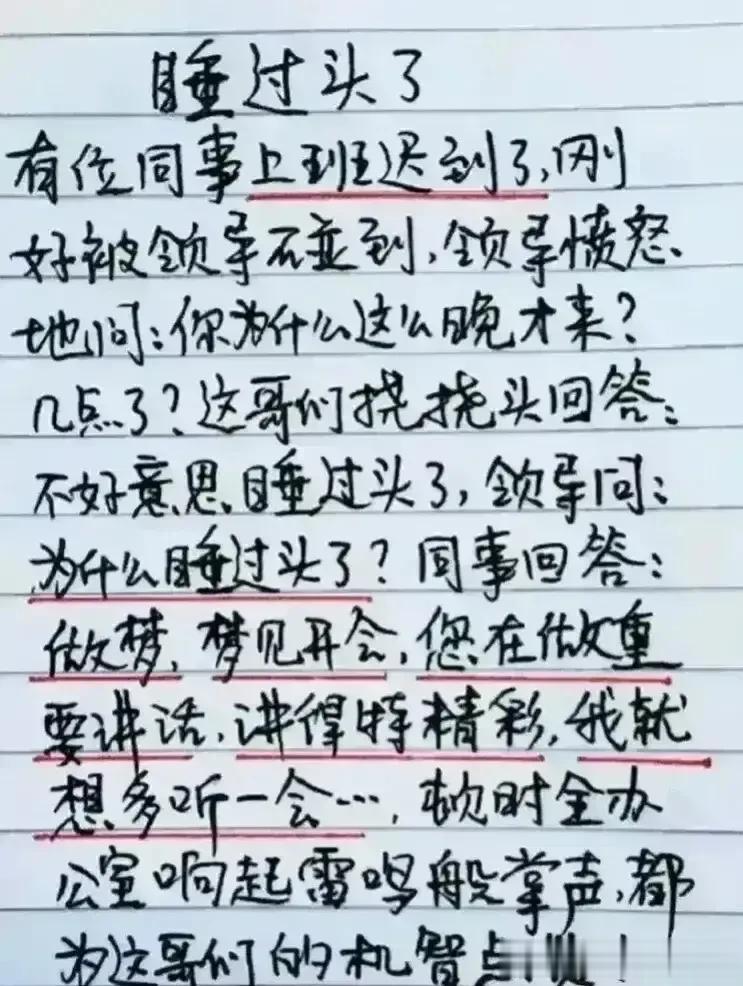 睡过头了
有位同事上班迟到了,刚
好被领导碰到,领导愤怒
地问:你为什么这么晚才来?
几点了?这哥们挠挠头回答:
不好意思睡过头了,领导问:
为什么睡过头了?同事回答:
做梦,梦见开会,您在做重
要讲话,讲得特精彩,我就
想多听一会…,顿时全办
公室响起雷鸣般掌声,都
为这哥们的机智点!